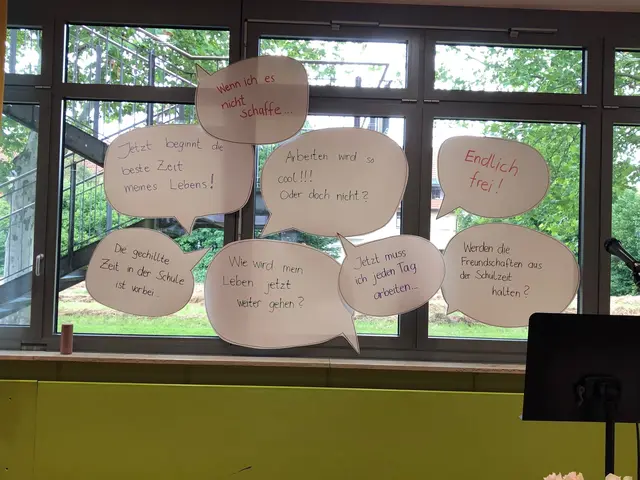 Wenn ich es
nicht
schaffe...
Jetzt beginnt die
beste Zeit
meines Lebens!
Arbeiten wird so
cool!!!
Oder doch nicht?
Endlich
frei!
Die gechillte
Zeit in der Schule
ist vorbei...
Wie wird mein
Leben jetzt
weiter gehen?
Jetzt muss
ich jeden Tag
arbeiten...
Werden die
Freundschaften aus
der Schulzeit
halten?